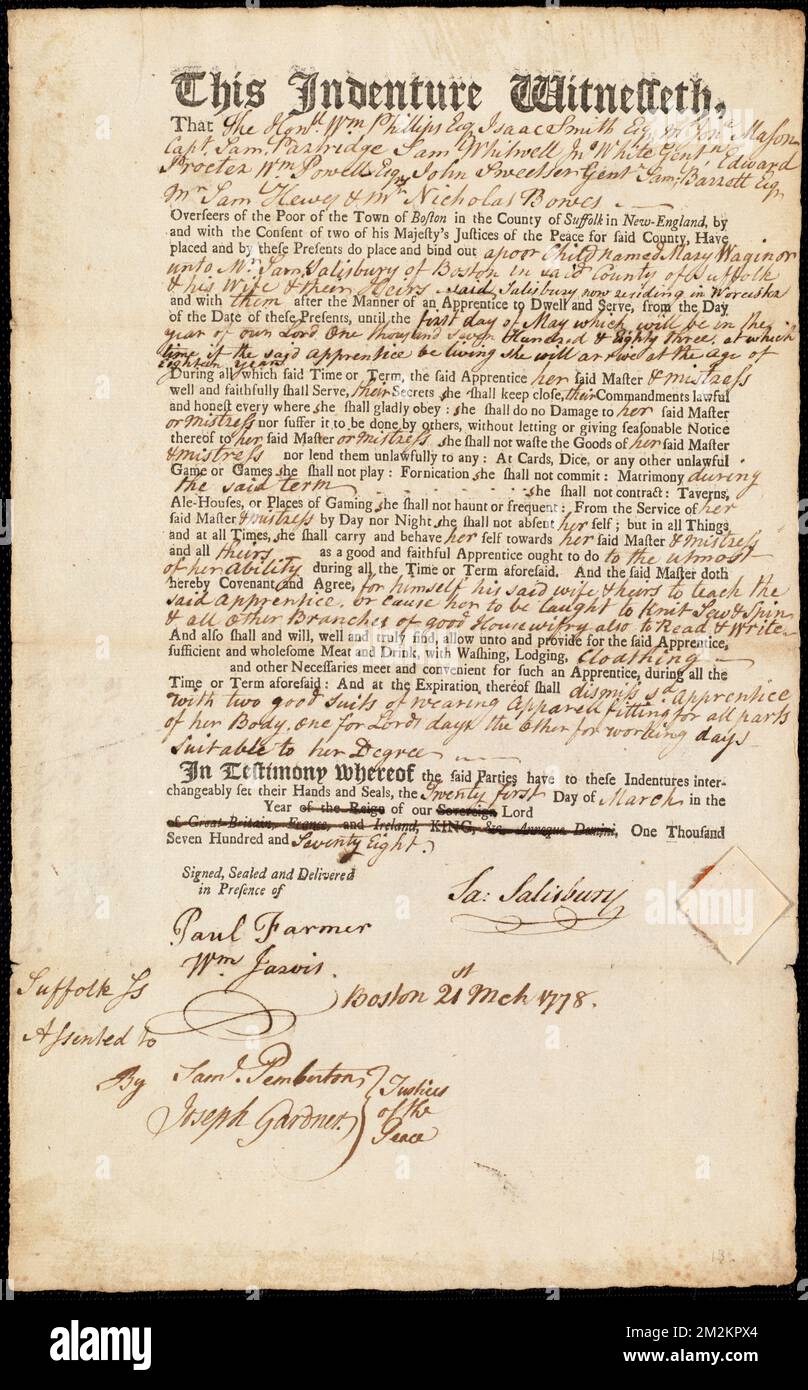 This Indenture Witnesseth,
That The Honle. Wm Phillips Esq Isaac Smith Esq Mr Jona Mason
Capt. Sam. Partridge Sam. Whitwell Jno White Gentn Edward
Procter Wm Powell Esq John Sweetser Gent Sam. Barrett Esq
Mr Sam Hewes & Mr Nicholas Bowes
Overseers of the Poor of the Town of Boston in the County of Suffolk in New-England, by
and with the Consent of two of his Majesty's Justices of the Peace for said County, Have
placed and by these Presents do place and bind out a poor Child named Mary Waginor
unto Mr. Sam. Salisbury of Boston in said County of Suffolk
& his Wife & their Heirs said Salisbury now residing in Worcester
and with them after the Manner of an Apprentice to Dwell and Serve, from the Day
of the Date of these Presents, until the first day of May which will be in the
year of our Lord One thousand seven Hundred & Eighty three, at which
time if the said apprentice be living she will arrive at the age of
Eighteen years
During all which said Time or Term, the said Apprentice her said Master & mistress
well and faithfully shall Serve, their Secrets she shall keep close, their Commandments lawful
and honest every where she shall gladly obey: she shall do no Damage to her said Master
or mistress nor suffer it to be done by others, without letting or giving seasonable Notice
thereof to her said Master or mistress she shall not waste the Goods of her said Master
& mistress nor lend them unlawfully to any: At Cards, Dice, or any other unlawful
Game or Games she shall not play: Fornication she shall not commit: Matrimony during
the said term she shall not contract: Taverns,
Ale-Houses, or Places of Gaming she shall not haunt or frequent: From the Service of her
said Master & mistress by Day nor Night she shall not absent her self; but in all Things
and at all Times, she shall carry and behave her self towards her said Master & mistress
and all theirs as a good and faithful Apprentice ought to do to the utmost
of her Ability during all the Time or Term aforesaid. And the said Master doth
hereby Covenant and Agree, for himself his said wife & heirs to teach the
said Apprentice, or cause her to be taught to Knit Sew & Spin
& all other Branches of good Housewifry also to Read & Write
And also shall and will, well and truly find, allow unto and provide for the said Apprentice,
sufficient and wholesome Meat and Drink, with Washing, Lodging, Cloathing
and other Necessaries meet and convenient for such an Apprentice, during all the
Time or Term aforesaid: And at the Expiration thereof shall dismiss sd. Apprentice
with two good suits of wearing Apparell fitting for all parts
of her Body. one for Lords days & the other for working days
Suitable to her Degree
In Testimony whereof the said Parties have to these Indentures inter-
changeably set their Hands and Seals, the Twenty first Day of March in the
Year of the Reign of our Sovereign Lord
of Great-Britain, France, and Ireland, KING, &c. Annoque Domini, One Thousand
Seven Hundred and Seventy Eight.
Signed, Sealed and Delivered
in Presence of
Sa: Salisbury
Paul Farmer
Wm Jarvis.
Suffolk Ss
Boston 21st Mch 1778.
Assented to
By Saml. Pemberton
Joseph Gardner
Justices
of the
Peace
alamy
alamy
Image ID: 2M2KPX4
www.alamy.com